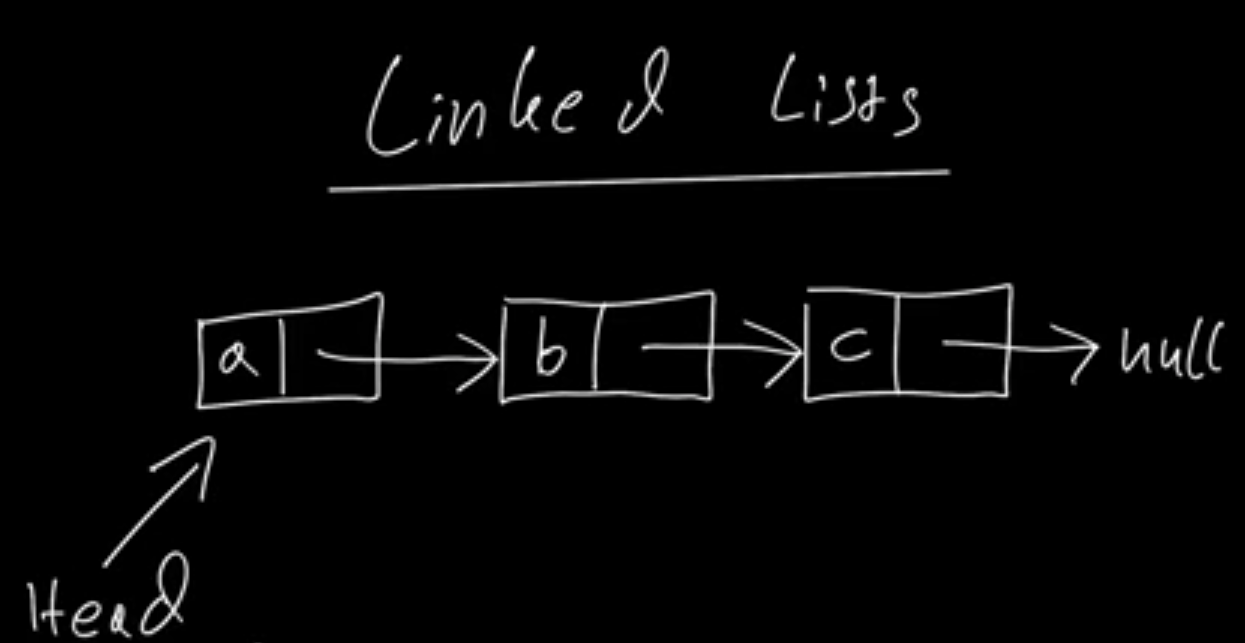 Linked Lists
a b c null
Head